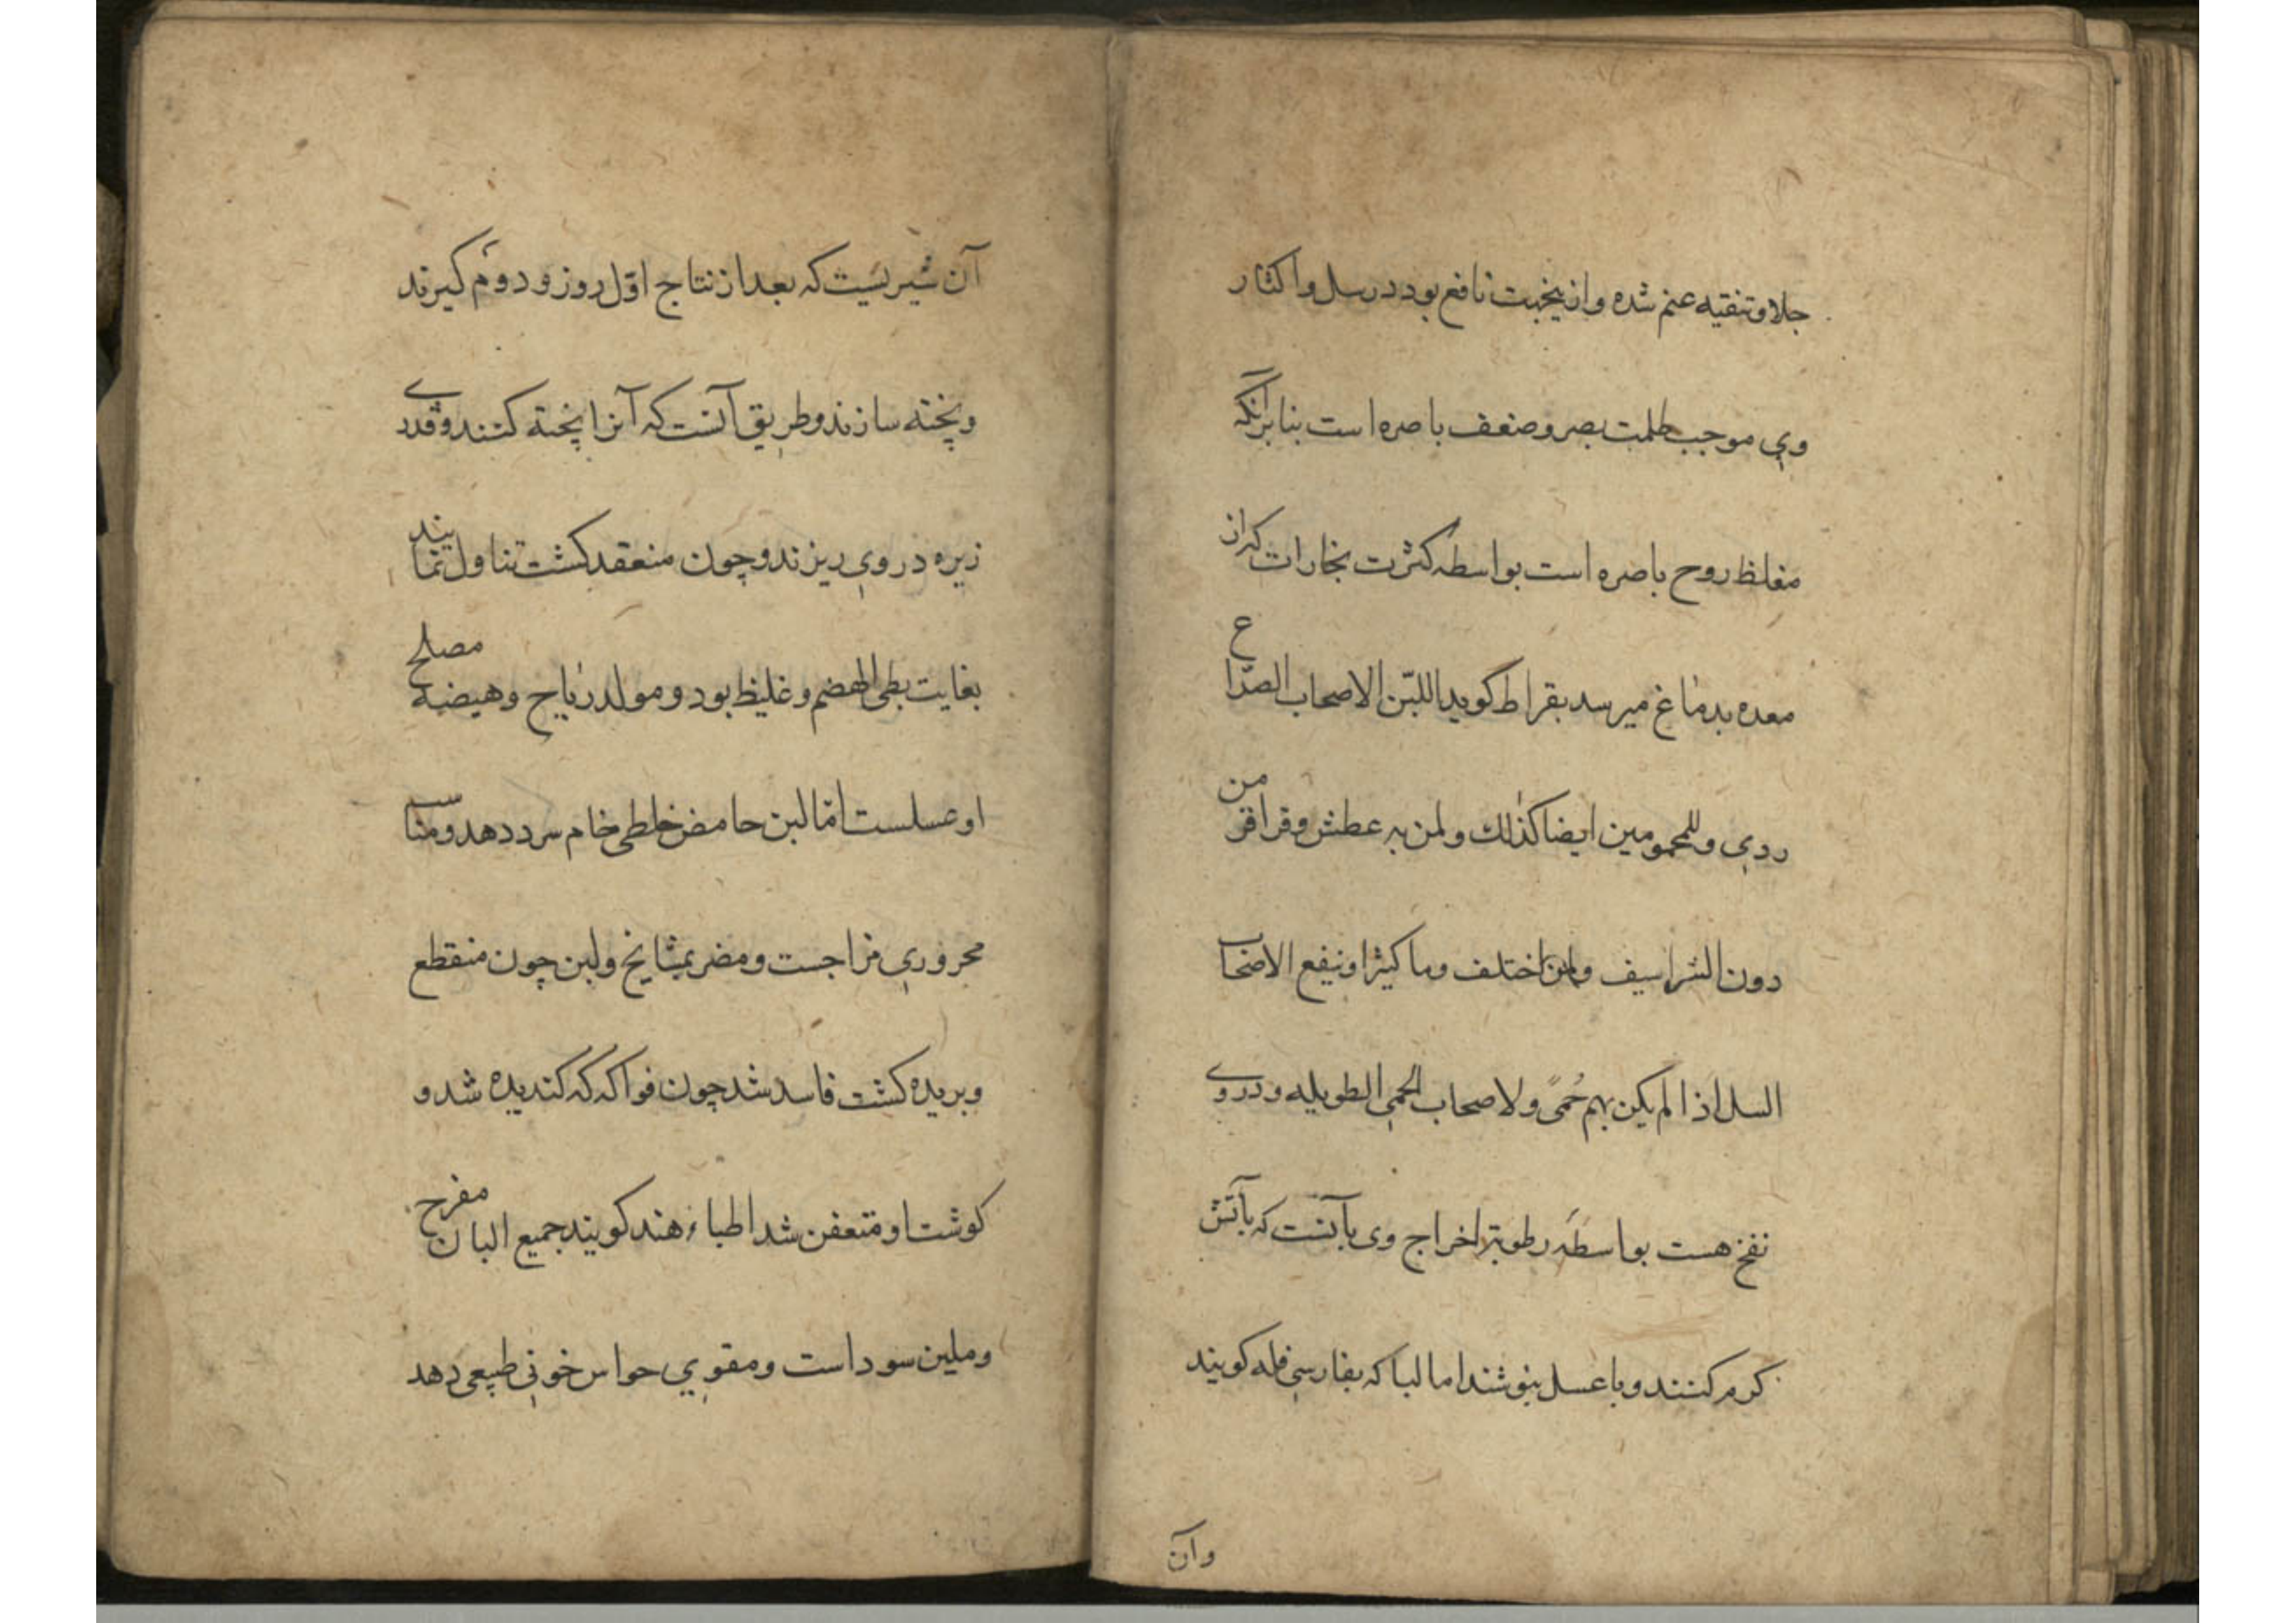 جلا و تنقیه عنم شده و از ینجهت نافع بود در سل و اکثار
وی موجب ظلمت بصر و ضعف باصره است بنابر آنکه
مغلظ روح باصره است بواسطه کثرت بخارات که از
معده بدماغ میرسد بقراط کوید اللبن الاصحاب الصداع
ردی و للمحمومین ایضا کذلک و لمن به عطش و قراقر من
دون الشراسیف و لمن اختلف وما کثیرا و ینفع الاصحاب
السل اذا لم یکن بهم حُمیً ولاصحاب الحمی الطویله و در وی
نفخ هست بواسطه رطوبة اخراج وی بآنست که بآتش
کرم کنند و با عسل بنوشند اما لبا که بفارسی فله کویند
و آن
آن شیریست که بعد از نتاج اوّل روز و دوم کیرند
و پخته سازند و طریق آنست که آنرا پخته کنند و قدری
زیره در وی ریزند و چون منعقد کشت تناول نمایند
بغایت بطی الهضم و غلیظ بود و مولد ریاح و هیضه مصلح
او عسلست امّا لبن حامض خلطی خام سرد دهد و مناسب
محروری مزاجست و مضر بمشایخ و لبن چون منقطع
و بریده کشت فاسد شد چون فواکه که کندیده شد و
کوشت او متعفن شد اطباء هند کویند جمیع البان مفرح
و ملین سوداست و مقوی حواس خونی طبیعی دهد